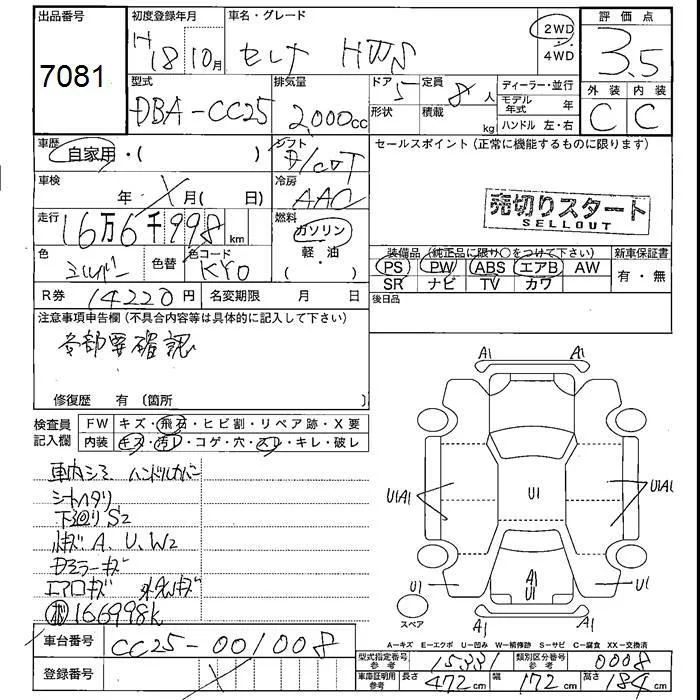 出品番号
7081
初度登録年月
H18 10月
車名・グレード
セレナ HWS
2WD
4WD
評価点
3.5
外装 内装
C C
型式
DBA-CC25
排気量
2000cc
ドア 5
形状
定員 8人
積載 kg
ディーラー・並行
モデル年式 年
ハンドル 左・右
車歴
自家用・( )
シフト
冷房
AAC
車検
年 月( 日)
走行
16万6千998km
燃料
ガソリン
(軽・油)
色
シルバー
色替
色コード
KY0
R券 14220円
名変期限 月 日
セールスポイント(正常に機能するものに限ります)
売切りスタート
SELLOUT
装備品(純正品に限り〇をつけて下さい)
PS PW ABS エアB AW
SR ナビ TV カワ
新車保証書
有・無
後日品
注意事項申告欄(不具合内容等は具体的に記入して下さい)
各部要確認
修復歴 有(箇所 )
検査員記入欄
FW キズ・飛石・ヒビ割・リペア跡・X要
内装 キズ・汚レ・コゲ・穴・スレ・キレ・破レ
車内シミ ハンドルカバー
シートヘタリ
下廻りS2
小キズ A、U、W2
エアロキズ
166998K
車台番号 CC25-001008
登録番号
A1 A1
U1A1 U1 U1A1
A1
U1
U1 U1
A1 A1
スペア
A-キズ E-エクボ U-凹み W-補修跡 S-サビ C-腐食 XX-交換済
型式指定番号 参考
類別区分番号 参考 0008
車庫証明用 参考 長さ 472cm 幅 172cm 高さ 184cm